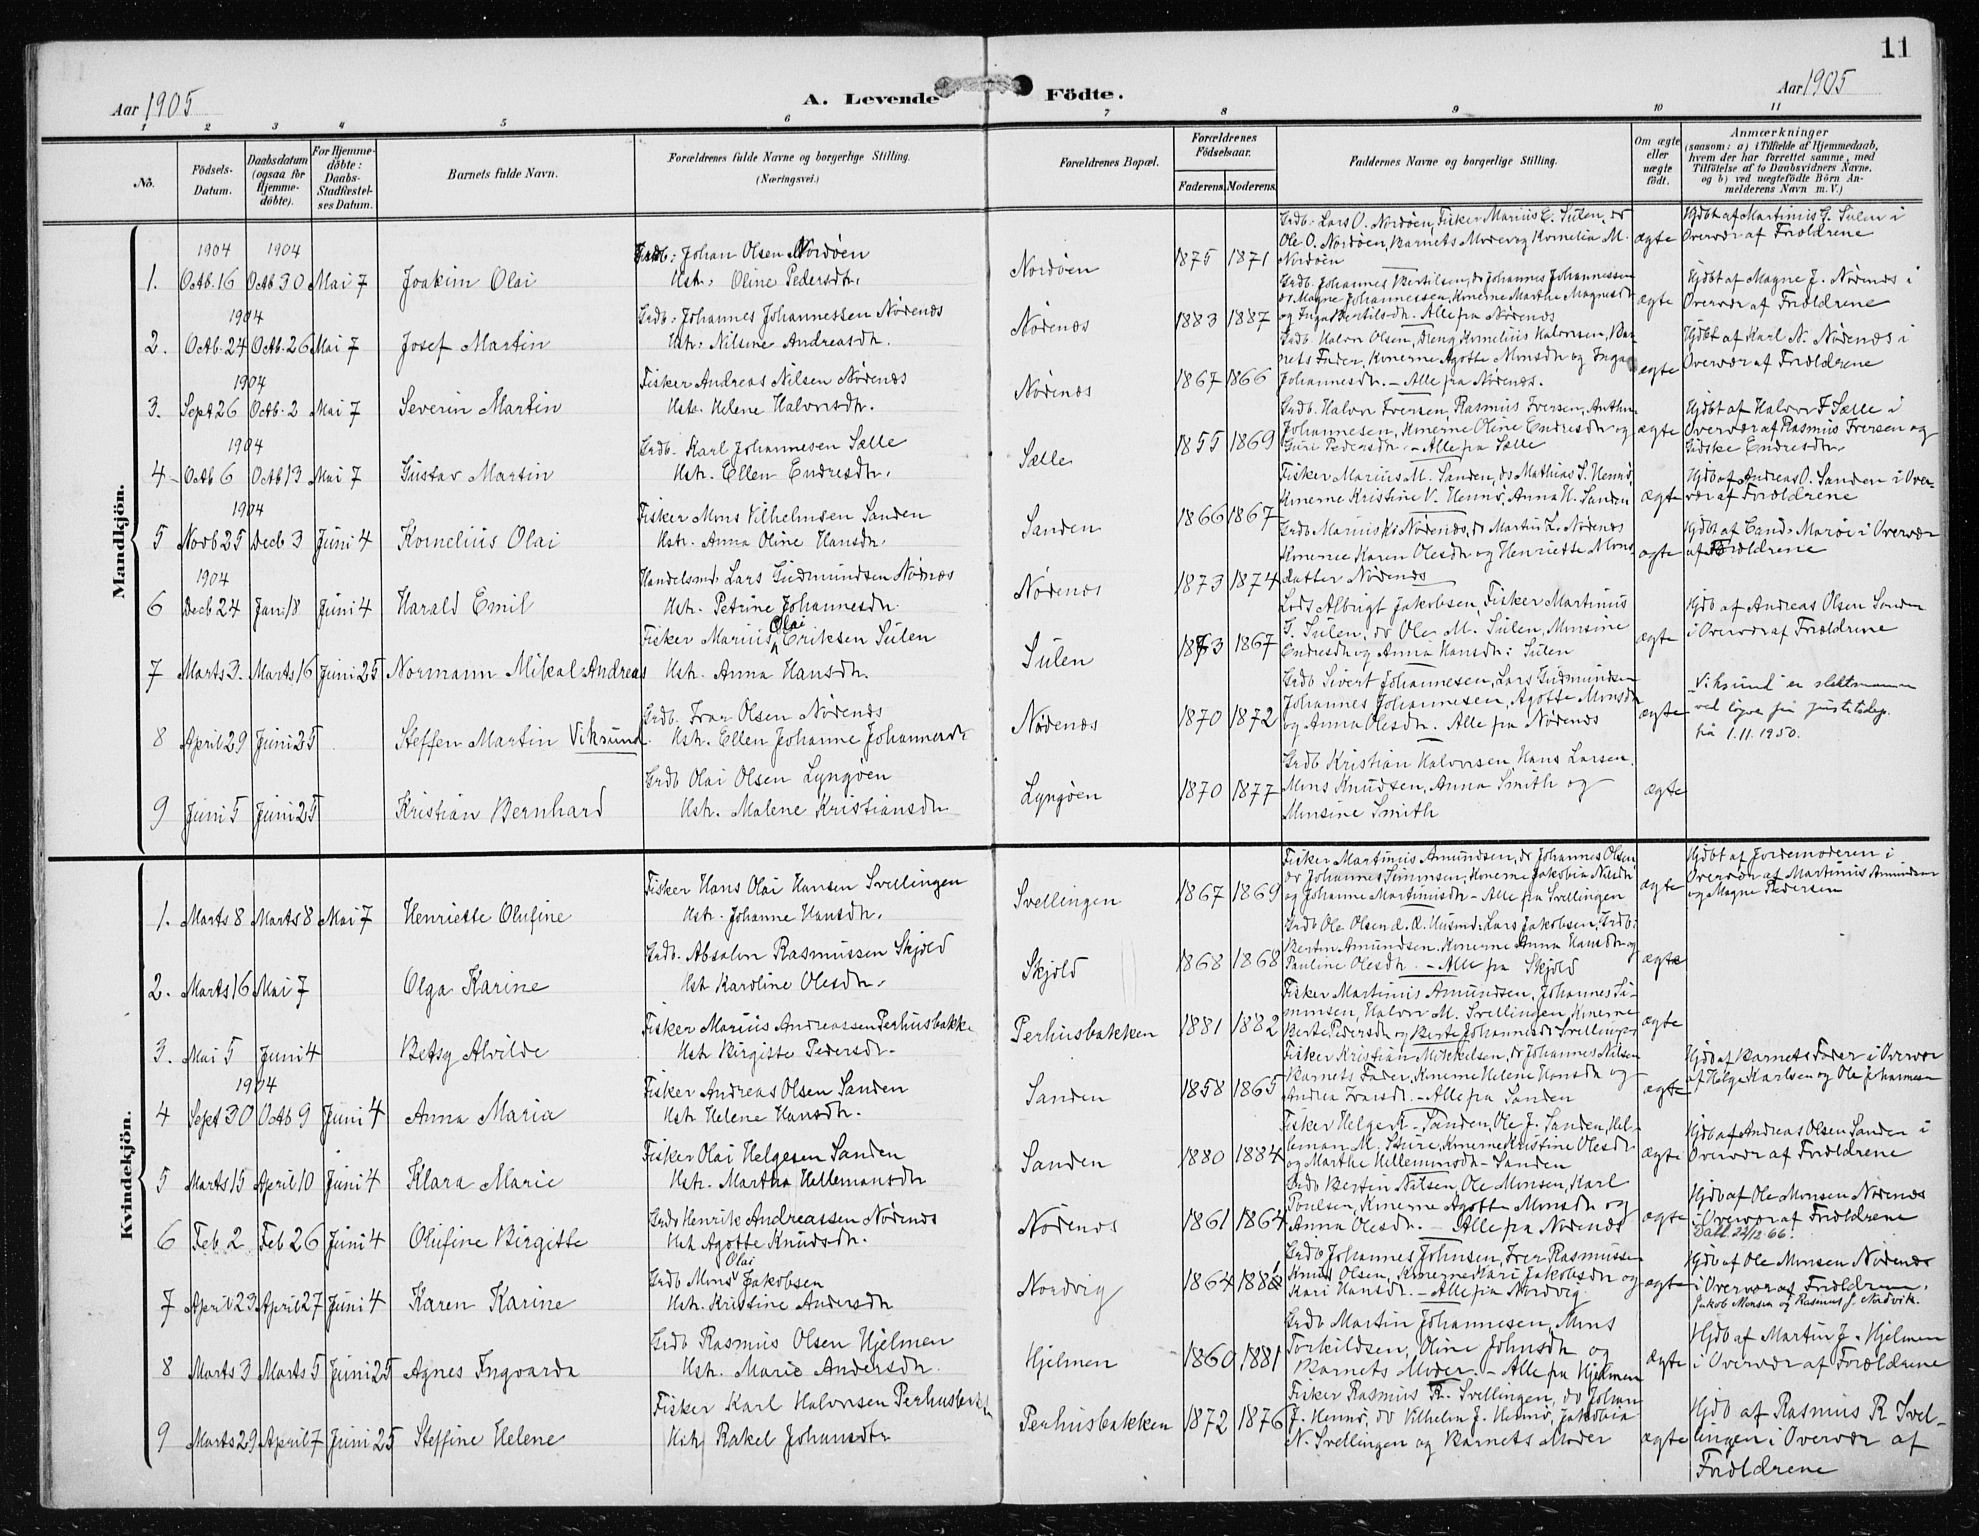 11
Aar 1905
A. Levende Födte.
Aar 1905
1 2 3 4 5 6 7 8 9 10 11
No.
Födsels-Datum.
Daabsdatum (ogsaa for Hjemme-döbte).
For Hjemme-döbte: Daabs-Stadfæstel-ses Datum.
Barnets fulde Navn.
Forældrenes fulde Navne og borgerlige Stilling. (Næringsvei.)
Forældrenes Bopæl.
Forældrenes Födselsaar.
Faderens. Moderens.
Faddernes Navne og borgerlige Stilling.
Om ægte eller uægte födt.
Anmærkninger
(saasom: a) i Tilfælde af Hjemmedaab, hvem der har forrettet samme, med Tilföielse af to Daabsvidners Navne, og b) ved uægtefödte Börn An-melderens Navn m. V.)
Mandkjön.
1904 1904
1. Octb. 16 Octb. 30 Mai 7 Joakim Olai
Grdb: Johan Olsen Nordöen
Hstr. Oline Pedersdtr.
Nordöen 1875 1871
Grdb: Lars O. Nordöen, Fisker Marius E. Sulen, do
Ole O. Nordöen, Barnets Moder og Kornelia M.
Nordöen
ægte
Hjdbt af Martinus G. Sulen i
Overvær af Forældrene
1904
2. Octb. 24 Octb. 26 Mai 7 Josef Martin
Grdb: Johannes Johannessen Nödenæs
Hstr: Nilsine Andreasdtr.
Nödenæs 1883 1887
Grdb. Johannes Bertilsen, do Johannes Johannessen
do Magne Johannessen, Konerne Marthe Magnesdtr
og Inga Bertilsdtr. Alle fra Nödenæs
ægte
Hjdbt af Magne J. Nödenæs i
Overvær af Forældrene
1904
3. Sept 26 Octb. 2 Mai 7 Severin Martin
Fisker Andreas Nilsen Nödenæs
Hstr. Helene Halvorsdtr.
Nödenæs 1867 1866
Grdb. Halvor Olsen, Dreng Kornelius Halvorsen, Bar-
nets Fader, Konerne Agotte Monsdtr og Inga
Johannesdtr. – Alle fra Nödenæs.
ægte
Hjdbt af Karl N. Nödenæs i
Overvær af Forældrene
1904
4. Octb 6 Octb 13 Mai 7 Gustav Martin
Grdb. Karl Johannesen Sælle
Hstr. Ellen Endresdtr.
Sælle 1855 1869
Grdb. Halvor Iversen, Rasmus Iversen, Anthon
Johannesen, Konerne Oline Endresdtr og
Guri Pedersdtr. – Alle fra Sælle
ægte
Hjdbt af Halvor I Sælle i
Overvær af Rasmus Iversen og
Gidske Endresdtr.
1904
5 Novb 25 Decb 3 Juni 4 Kornelius Olai
Fisker Mons Vilhelmsen Sanden
Hstr. Anna Oline Hansdtr.
Sanden 1866 1867
Fisker Marius M. Sanden, do Mathias S. Hennö,
Konerne Kristine V. Hennö, Anna H. Sanden
ægte
Hjdb af Andreas O. Sanden i Over-
vær af Forældrene
1904
6 Decb 24 Jan. 18 Juni 4 Harald Emil
Handelsmd. Lars Gudmundsen Nödnæs
Hstr. Petrine Johannesdtr.
Nödenæs 1873 1874
Konerne Karen Olesdtr og Henriette Mons-
datter Nödenæs
ægte
Hjdbt af Cand. Maröe i Overvær
af Forældrene
7 Marts 3. Marts 16 Juni 25 Normann Mikal Andreas
Olai
Fisker Marius Eriksen Sulen
Hstr. Anna Hansdtr.
Sulen 1863 1867
Lods Albrigt Jakobsen, Fisker Martinus
G. Sulen, do Ole M. Sulen, Monsine
Endresdtr og Anna Hansdtr: Sulen
ægte
Hjdb af Andreas Olsen Sanden
i Overvær af Forældrene
8 April 29 Juni 25 Steffen Martin Viksund
Grdb. Ivar Olsen Nödenæs
Hstr. Ellen Johanne Johannesdtr
Nödenæs 1870 1872
Grdb Sivert Johannesen, Lars Gudmundsen
Johannes Johannesen, Agotte Monsdtr
og Anna Olesdtr. Alle fra Nödenæs
ægte
"Viksund" er slektsnavn
ved bevr. fra Justitsdep.
frå 1.11.1950.
9 Juni 5 Juni 25 Kristian Bernhard
Grdb Olai Olsen Lyngöen
Hstr. Malene Kristiansdtr
Lyngöen 1870 1877
Grdb Kristian Halvorsen, Hans Larsen,
Mons Knudsen, Anna Smith og
Monsine Smith
ægte
Kvindekjön.
1. Marts 8 Marts 8 Mai 7 Henriette Olufine
Fisker Hans Olai Hansen Svellingen
Hstr. Johanne Hansdtr.
Svellingen 1867 1869
Fisker Martinus Amundsen, do Johannes Olsen
do Johannes Simonsen, Konerne Jakobia Nilsdtr
og Johanne Martinusdtr – Alle fra Svellingen
ægte
Hjdbt af Jordemoderen i
Overvær af Martinus Amundsen
og Magne Pedersen
2. Marts 16 Mai 7 Olga Karine
Grdb. Absalon Rasmussen Skjold
Hst Karoline Olesdtr.
Skjold 1868 1868
Grdb Ole Olsen d. Æ. Husmd. Lars Jakobsen, Grdb:
Bertin Amundsen, Konerne Anna Hansdtr og
Pauline Olesdtr. – Alle fra Skjold
ægte
3. Mai 5 Juni 4 Betsy Alvilde
Fisker Marius Andreassen Perhusbakke
Hstr Birgitte Pedersdtr.
Perhusbakken 1881 1882
Fisker Martinus Amundsen, Johannes Si-
monsen, Halvor M. Svellingen, Konerne
Berte Pedersdtr og Berte Johannesdtr Svellingen
ægte
1904
4 Sept 30 Octb 9 Juni 4 Anna Maria
Fisker Andreas Olsen Sanden
Hstr Helene Hansdtr.
Sanden 1858 1865
Fisker Kristian Mikkelsen, do Johannes Nilsen
Barnets Fader, Konerne Helene Hansdtr og
Andrea Ivarsdtr. – Alle fra Sanden
ægte
Hjdb af Barnets Fader i Overvær
af Helge Karlsen og Ole Johannesen
5 Marts 15 April 10 Juni 4 Klara Marie
Fisker Olai Helgesen Sanden
Hstr. Martha Hellemansdtr
Sanden 1880 1884
Fisker Helge K. Sanden, Ole J. Sanden, Hel-
leman M. Sture, Konerne Kristine Olesdtr
og Marthe Hellemansdtr – Sanden
ægte
Hjdb af Andreas Olsen Sanden i
Overvær af Forældrene
6 Feb 2 Feb 26 Juni 4 Olufine Birgitte
Grdb Henrik Andreassen Nödenæs
Hst Agotte Knudsdtr.
Nödenæs 1861 1864
Grdb Bertin Nilsen, Ole Monsen, Karl
Poulsen, Konerne Agotte Monsdtr og
Anna Olesdtr. – Alle fra Nödenæs
ægte
Hjdb af Ole Monsen Nödenæs
i Overvær af Forældrene
Dåtl. 22/12 66.
7 April 23 April 27 Juni 4 Karen Karine
Olai
Grdb Mons Jakobsen
Hstr. Kristine Andersdtr
Nordvig 1864 1886
Grdb Johannes Johnsen, Iver Rasmussen
Knud Olsen, Konerne Kari Jakobsdtr og
Kari Hansdtr. – Alle fra Nordvig.
ægte
Hjdb af Ole Monsen Nödenæs
i Overvær af Forældrene.
Jakob Monsen og Rasmus J. Nordvik.
8 Marts 3 Marts 5 Juni 25 Agnes Ingvarda
Grdb Rasmus Olsen Hjelmen
Hstr. Marie Andersdtr.
Hjelmen 1860 1881
Grdb Martin Johannesen, Mons
Torkildsen, Oline Johnsdtr og
Barnets Moder. – Alle fra Hjelmen
ægte
Hjdb af Martin J. Hjelmen
i Overvær af Forældrene
9 Marts 29 April 7 Juni 25 Steffine Helene
Fisker Karl Halvorsen Perhusbakke
Hstr Rakel Johansdtr
Perhusbakken 1872 1876
Fisker Rasmus R. Svellingen, do Johan
J. Hennö, do Vilhelm J. Hennö, Jakobia
N. Svellingen og Barnets Moder
ægte
Hjdb af Rasmus R Svel-
lingen i Overvær af
Forældrene